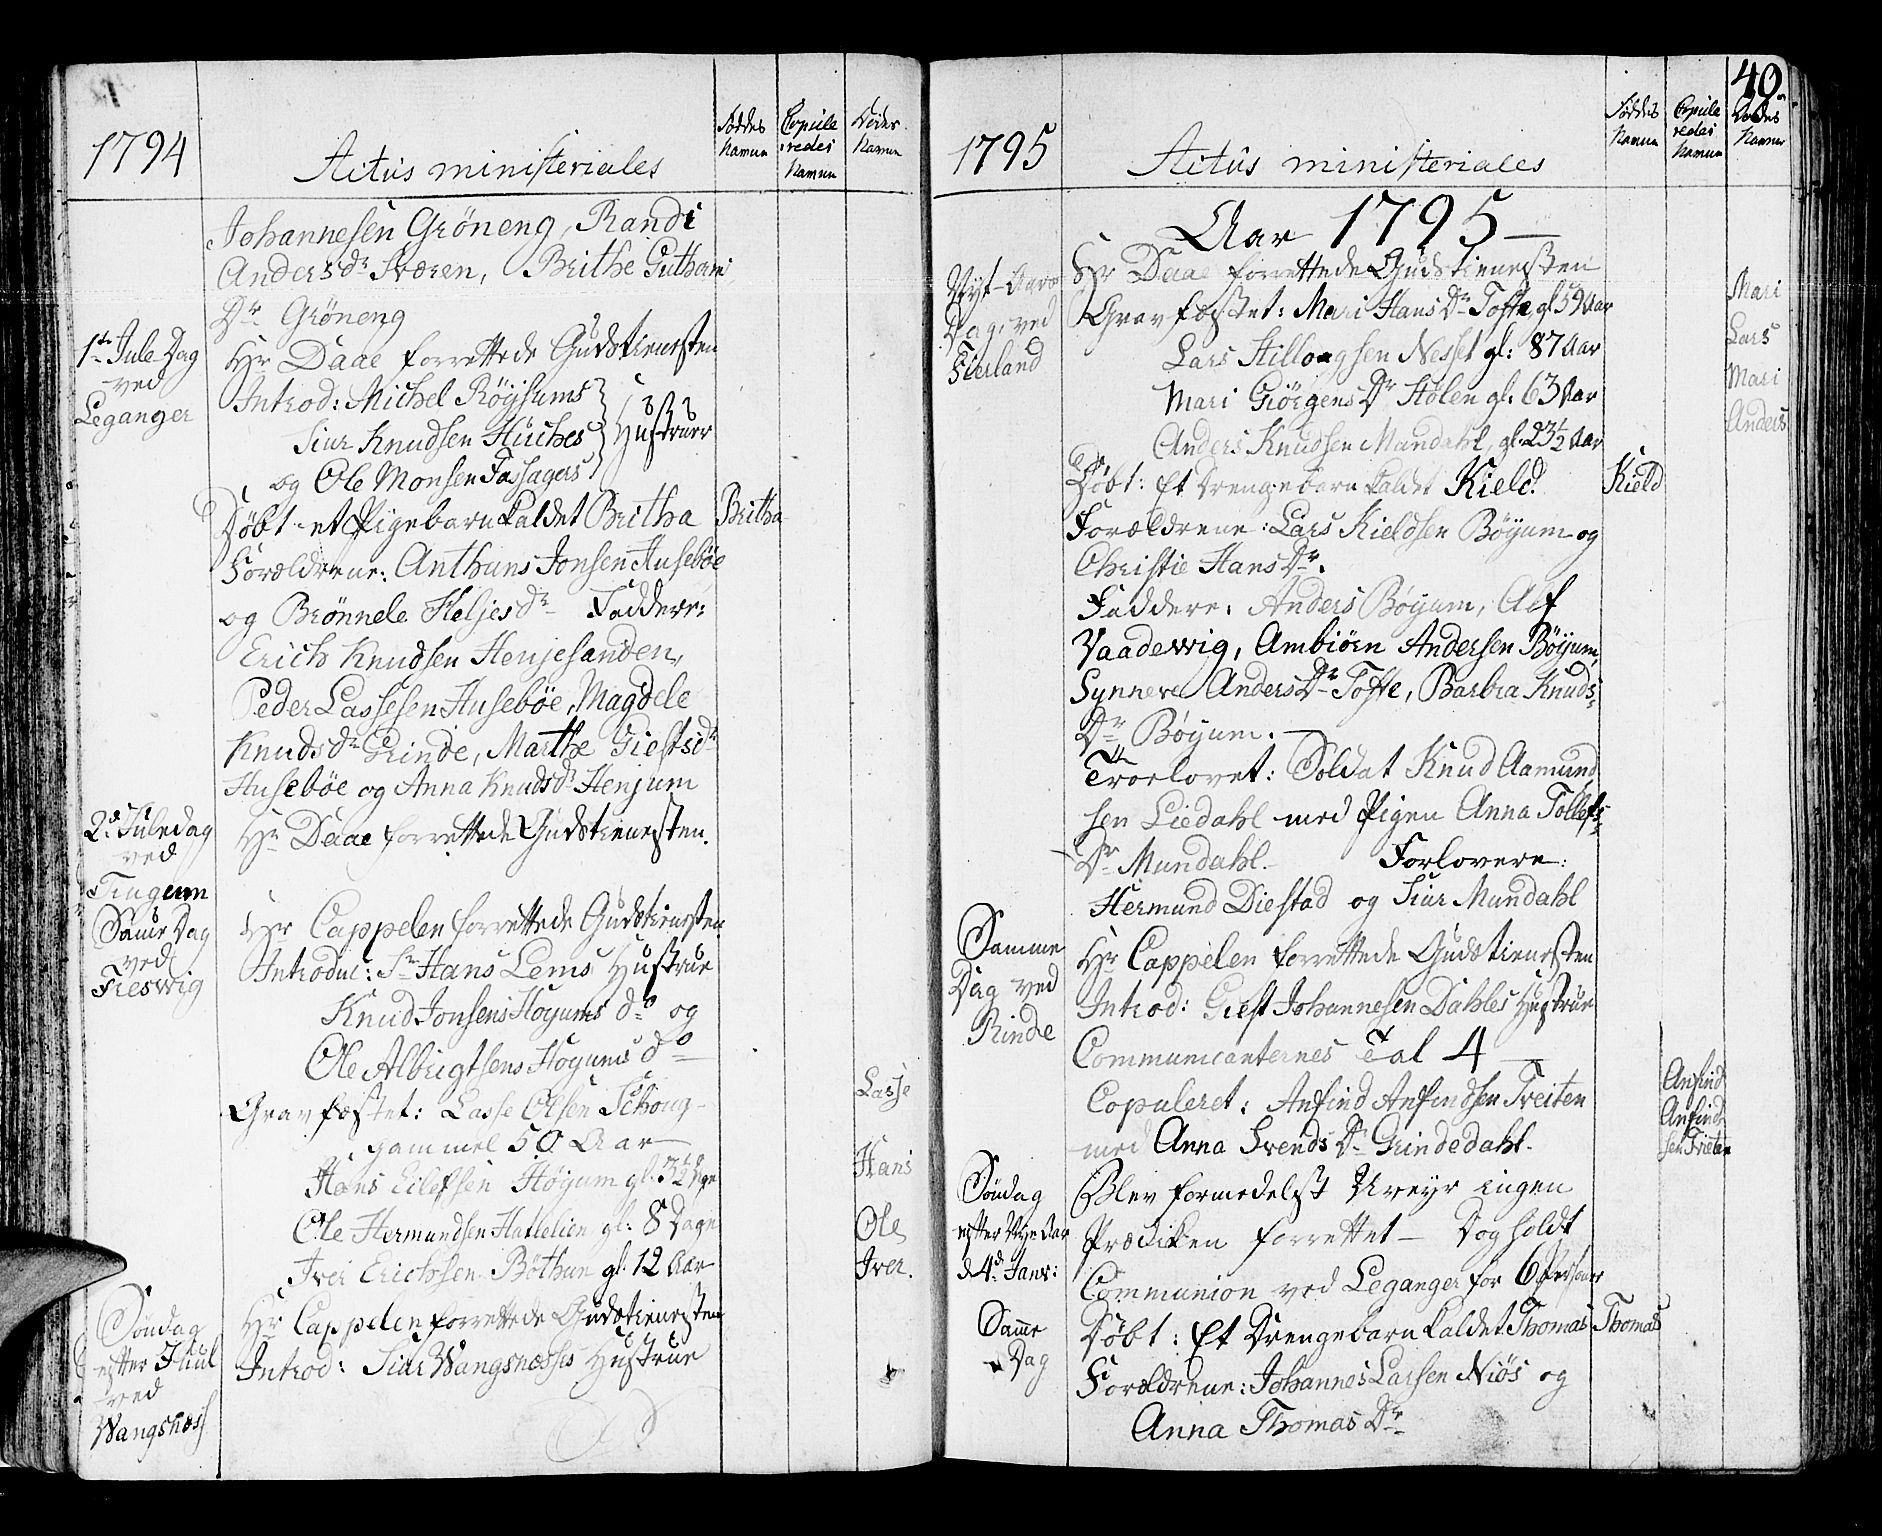 1794
Actus ministeriales
Föddes Namun
Copule redes Namun
Dödes Namun
Johannesen Gröneng, Randi
Anders dr Sværen, Brithe Guthorm
Dr Gröneng
1te Jule Dag
ved
Leganger
Hr Daae forrettede Gudstienesten
Introd: Michel Röysums
Siur Knudsen Huches
Hustruer
og Ole Monsen Fossagers
Döbt et Pigebarn kaldet Britha
Britha
Forældrene: Anthuns Jonsen Huseböe
og Brönnele Heljes dr Faddere:
Erich Knudsen Henjesanden,
Peder Lassesen Huseböe, Magdele
Knuds dr Grinde, Marthe Giests dr
Huseböe og Anna Knuds dr Henjum
2d Juledag
ved
Tingum
Hr Daae forrettede Gudstienesten.
Same Dag
ved
Fieswig
Hr Cappelen forrettede Gudstienesten
Introduc: Sr Hans Lems Hustrue
Knud Jonsens Höyums do og
Ole Albrigtsens Höyums do
Gravfæstet: Lasse Olsen Schoug
gammel 50 Aar
Lasse
Hans Eilefsen Höyum gl. 3½ Uge
Hans
Ole Hermundsen Hattelien gl: 8 Dage
Ole
Iver Erichsen Böthun gl. 12 Aar
Iver.
Söndag
efter Juul
ved
Wangsnæss
Hr Cappelen forrettede Gudstienesten
Introd: Siur Wangsnæsses Hustrue
40.
1795
Actus ministeriales
Föddes Namun
Copule redes Namun
Dödes Namun
Aar 1795
Nyt-Aars
Dag ved
Fierland
Hr Daae forrettede Gudstienesten
Gravfæstet: Mari Hans Dr Tofte gl 59 Aar
Mari
Lars Hillougsen Nesset gl: 87 Aar
Lars
Mari Giörgens Dr Hölen gl. 63 Aar
Mari
Anders Knudsen Mundahl, gl. 23½ Aar
Anders
Döbt: Et Drengebarn kaldet Kield.
Kield
Forældrene: Lars Kieldsen Böyum og
Christie Hans Dr.
Faddere: Anders Böyum, Alf
Vaadewig, Ambiörn Andersen Böyum,
Synneve Anders Dr Tofte, Barbra Knuds
Dr Böyum.
Troelovet: Soldat Knud Aamund
sen Liedahl med Pigen Anna Tollefs
Dr Mundahl. Forlovere:
Hermund Diestad og Siur Mundahl
Samme
Dag ved
Rinde
Hr Cappelen forrettede Gudstienesten
Introd: Giest Johannesen Dahles Hustrue
Communicanternes Tal 4
Copuleret: Anfind Anfindsen Tveiten
med Anna Svends Dr Grindedahl.
Anfind
Anfind
sen Tveiten
Söndag
efter Nye Aar
d 4d Janv:
Blev formedelst Uveyr ingen
Prædiken forrettet – Dog holdt
Communion ved Leganger for 6 Personer
Samme
Dag
Döbt: Et Drengebarn kaldet Thomas
Thomas
Forældrene: Johannes Larsen Niös og
Anna Thomas Dr